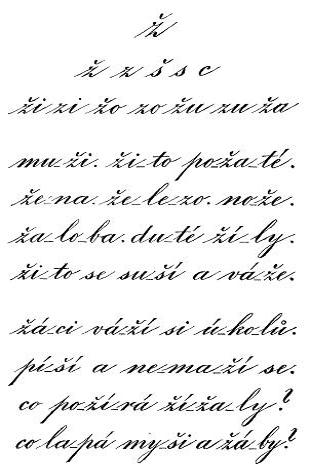 ž
ž z š s c
ži zi žo zo žu zu ža
mu-ži. ži-to po-ža-té.
že-na. že-le-zo. no-že.
ža-lo-ba. du-té ží-ly.
ži-to se su-ší a vá-že.
žá-ci vá-ží si ú-ko-lů.
pí-ší a ne-ma-ží se.
co po-ží-rá ží-ža-ly?
co la-pá my-ši a žá-by?